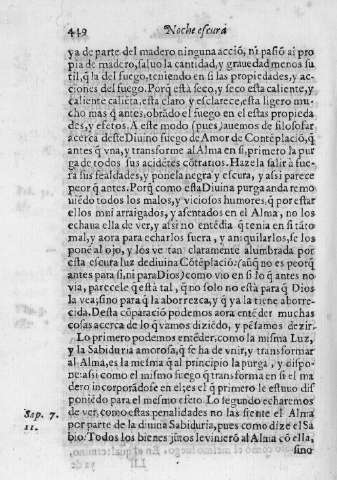 449 Noche escura
ya de parte del madero ninguna acciõ, ni pasiõ ai pro
pia de madero, saluo la cantidad, y grauedad menos su
til, q̃ la del fuego, teniendo en si las propiedades, y ac
ciones del fuego. Porq̃ està seco, y seco esta caliente, y
caliente caliẽta, esta claro y esclarece, esta ligero mu-
cho mas q̃ antes, obrãdo el fuego en el estas propieda
des, y efetos. A este modo (pues) auemos de filosofar
acerca deste Diuino fuego de Amor de Contẽplaciõ, q̃
antes q̃ vna, y transforme al Alma en si, primero la pur
ga de todos sus acidẽtes cõtrarios. Haze la salir à fue-
ra sus fealdades, y ponela negra y escura, y assi parece
peor q̃ antes. Porq̃ como esta Diuina purga anda remo
uiẽdo todos los malos, y viciosos humores, q̃ por estar
ellos mui arraigados, y asentados en el Alma, no los
echaua ella de ver, y assi no entẽdia q̃ tenia en si tãto
mal, y aora para echarlos fuera, y aniquilarlos, se los
ponẽ al ojo, y los ve tan claramente alumbrada por
esta escura luz de diuina Cõtẽplaciõ: (aũq̃ no es peor q̃
antes para si, ni para Dios) como vio en si lo q̃ antes no
via, parecele q̃ està tal, q̃ no solo no està para q̃ Dios
la vea; sino para q̃ la aborrezca, y q̃ ya la tiene aborre-
cida. Desta cõparaciõ podemos aora entẽder muchas
cosas acerca de lo q̃ vamos diziẽdo, y pẽsamos dezir.
Lo primero podemos entẽder, como la misma Luz,
y la Sabiduria amorosa, q̃ se ha de vnir, y transformar
al Alma, es la mesma q̃ al principio la purga, y dispo-
ne: asi como el mismo fuego q̃ transforma en si el ma
dero incorporãdose en el; es el q̃ primero le estuuo dis
poniẽdo para el mesmo efeto. Lo segundo echaremos
de ver, como estas penalidades no las siente el Alma
Sap. 7. por parte de la diuina Sabiduria, pues como dize el Sa
11. bio: Todos los bienes jũtos le vinierõ al Alma cõ ella,
sino